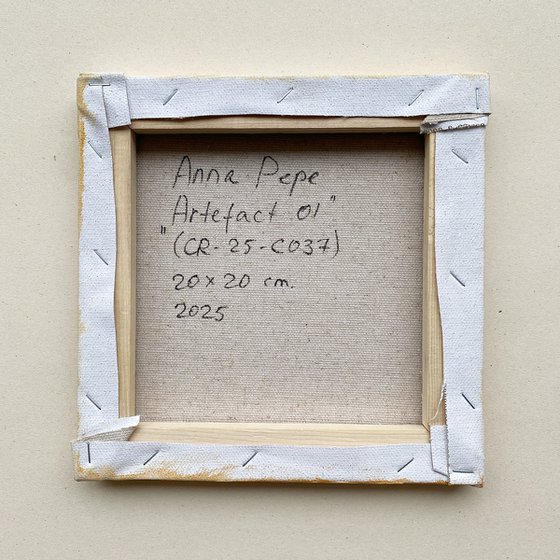 Anna Pepe
"Artefact 01"
(CR-25-C037)
20x20 cm.
2025